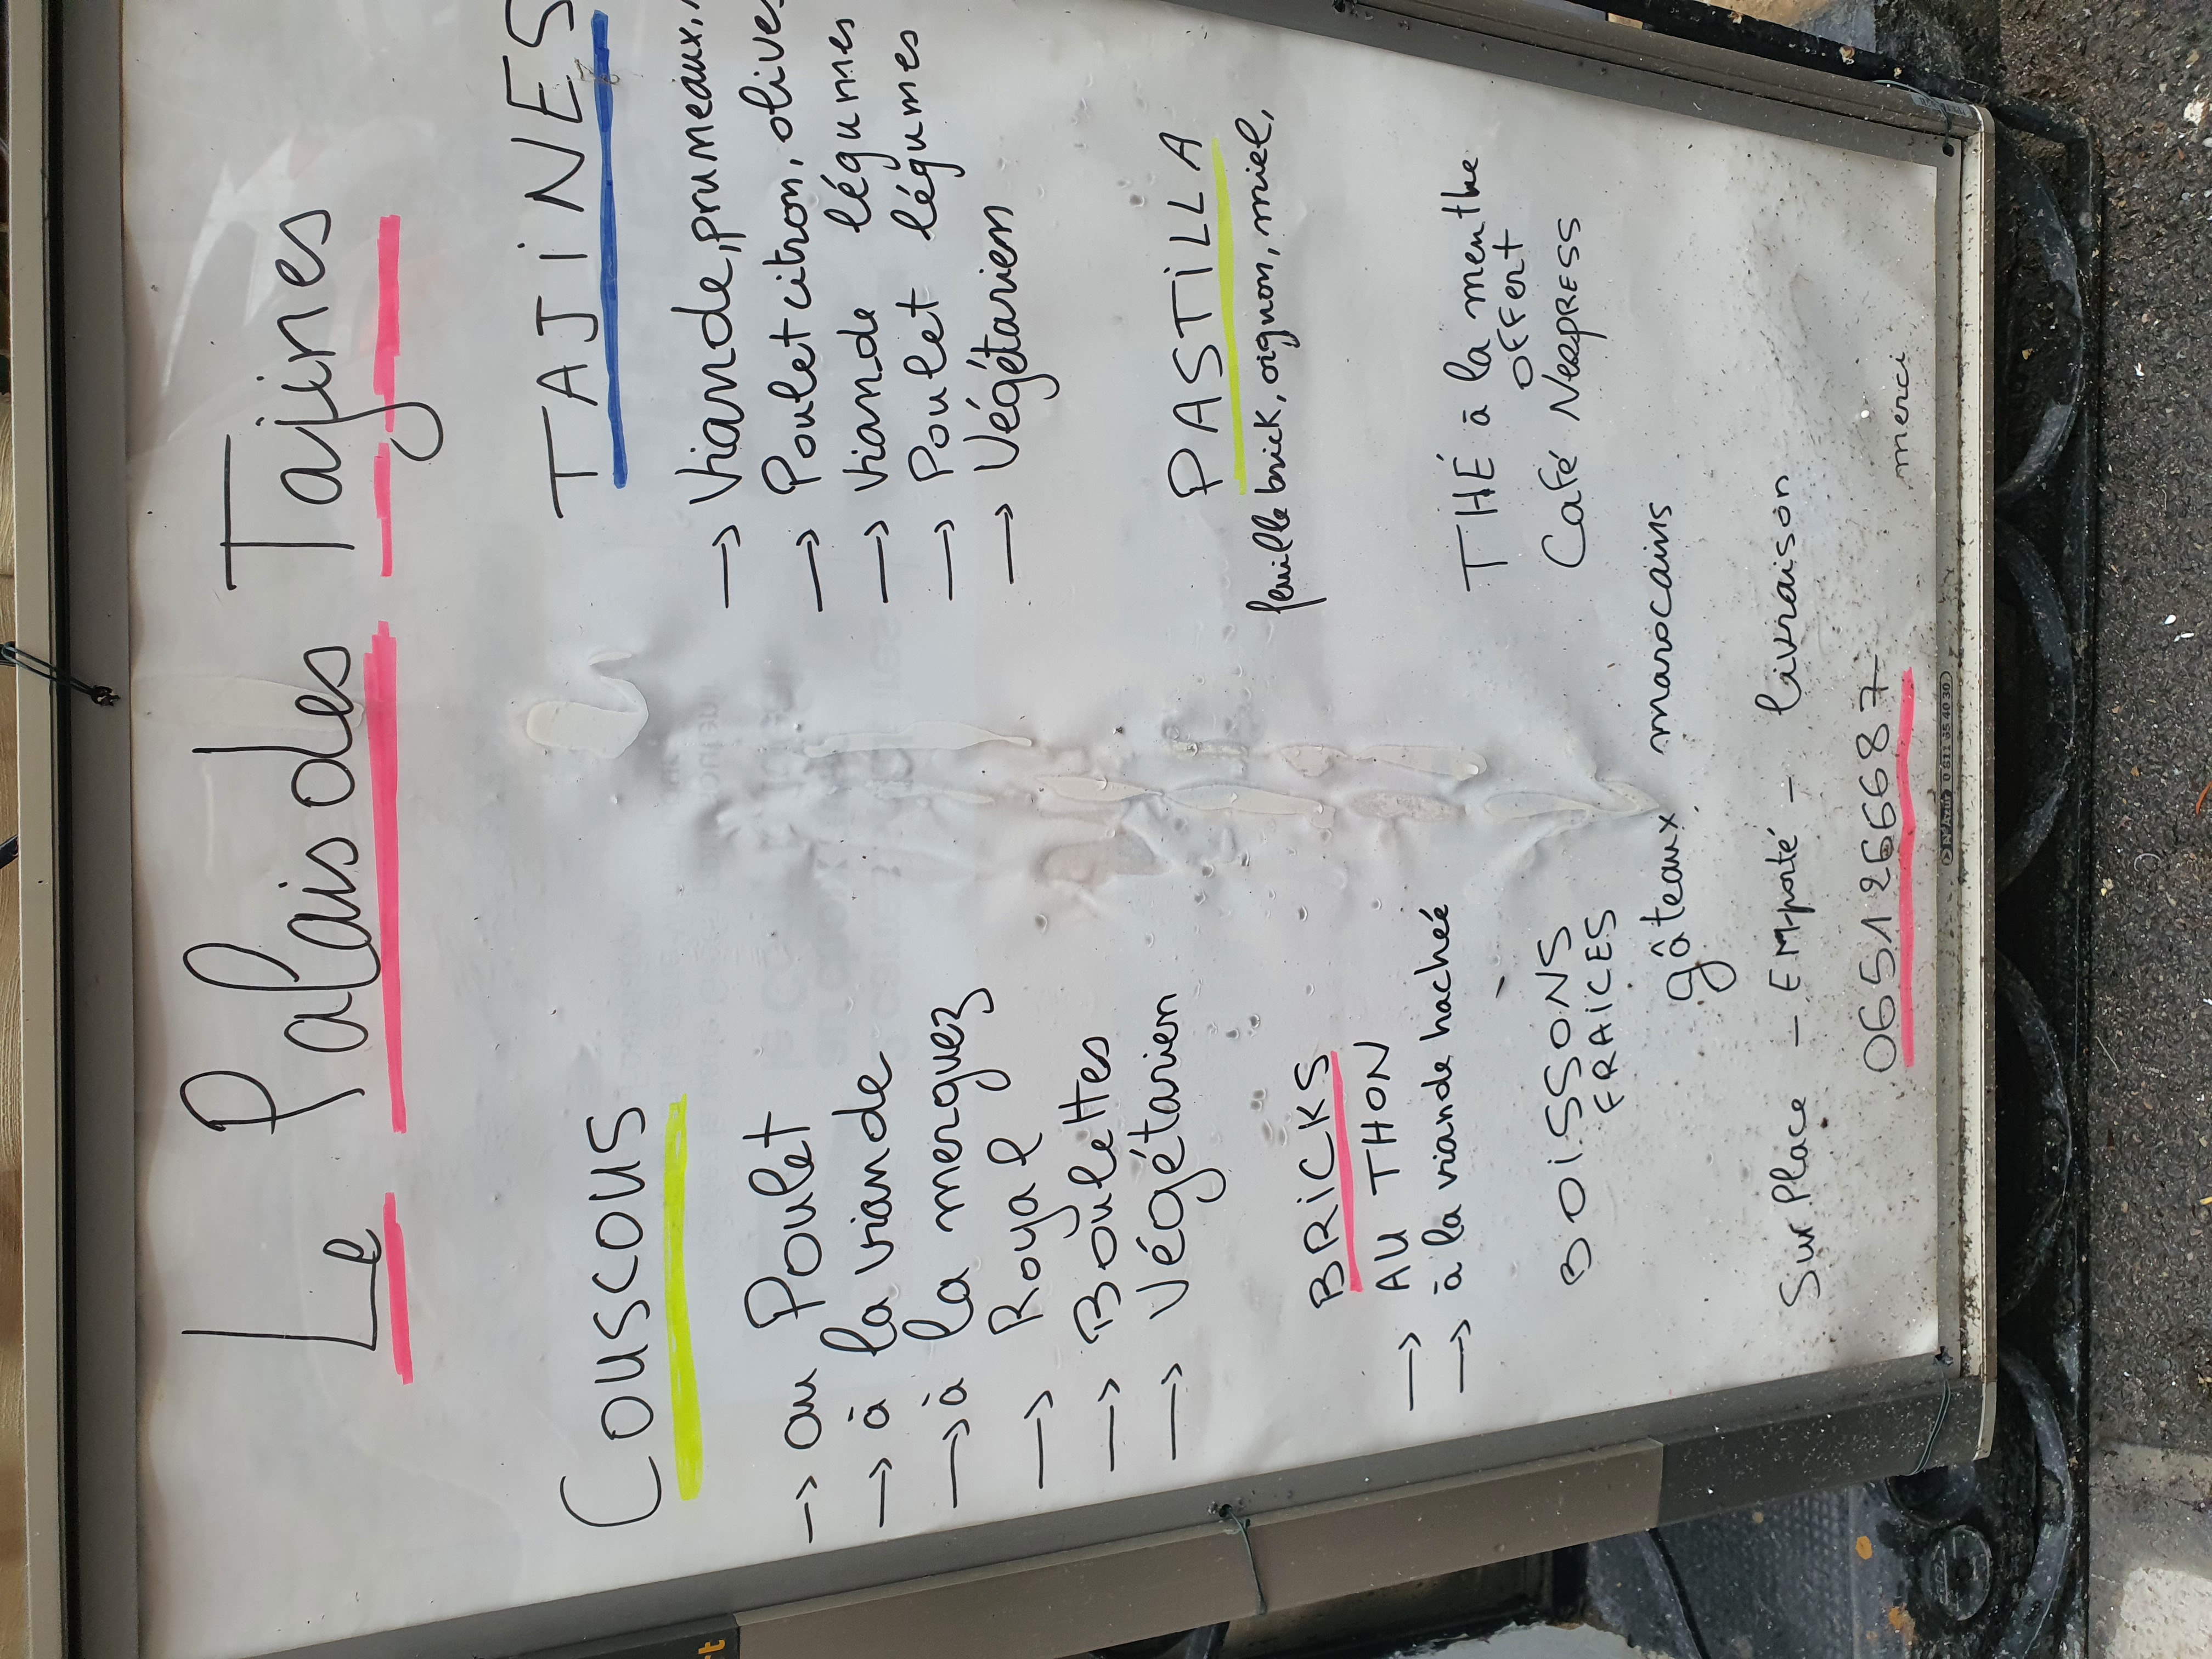 Le Palais des Tajines
COUSCOUS
→ au Poulet
→ à la viande
→ à la merguez
→ Royal
→ Boulettes
→ Végétarien
BRiCKS
→ AU THON
→ à la viande hachéé
BOiSSONS
FRAiCES
TAJiNES
→ Viande, pruneaux,
→ Poulet citron, olives
→ viande légumes
→ Poulet légumes
→ Végétarien
PASTiLLA
feuille brick, oignon, miel,
THÉ à la menthe
OFFert
Café NesPRESS
gâteaux marocains
Sur Place - EMporté - livraison
0651266687
merci
N°Azur 0 811 35 40 30